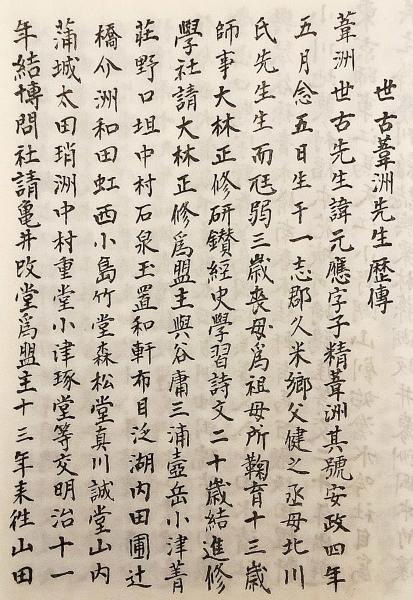 世古葦洲先生歴傳
葦洲世古先生諱元應字子精葦洲其號安政四年
五月念五日生于一志郡久米郷父健之丞母北川
氏先生生而尪弱三歳喪母爲祖母所鞠育十三歳
師事大林正修研鑚經史學習詩文二十歳結進修
學社請大林正修爲盟主與谷庸三浦壺岳小津菁
莊野口坦中村石泉玉置和軒布目泛湖内田圃辻
橋介洲和田虹西小島竹堂森松堂真川誠堂山内
蒲城太田琑洲中村重堂小津琢堂等交明治十一
年結博問社請亀井攺堂爲盟主十三年来徃山田